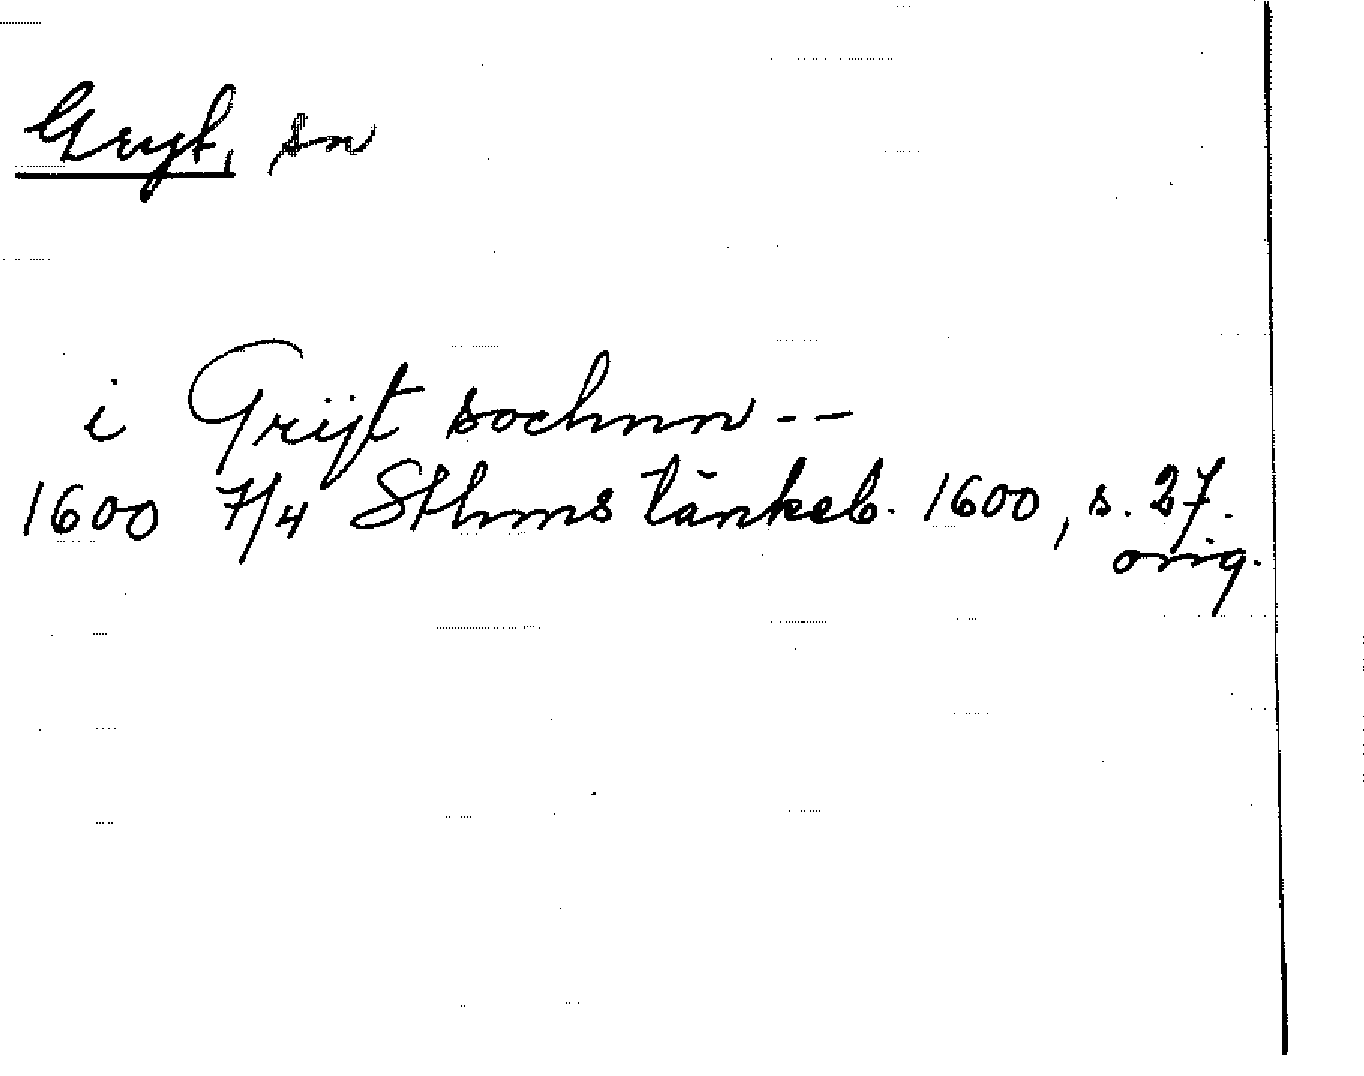 Gryt, sn
i Grÿt sochnn --
1600 7/4 Sthms tänkeb. 1600, s. 27.
orig.